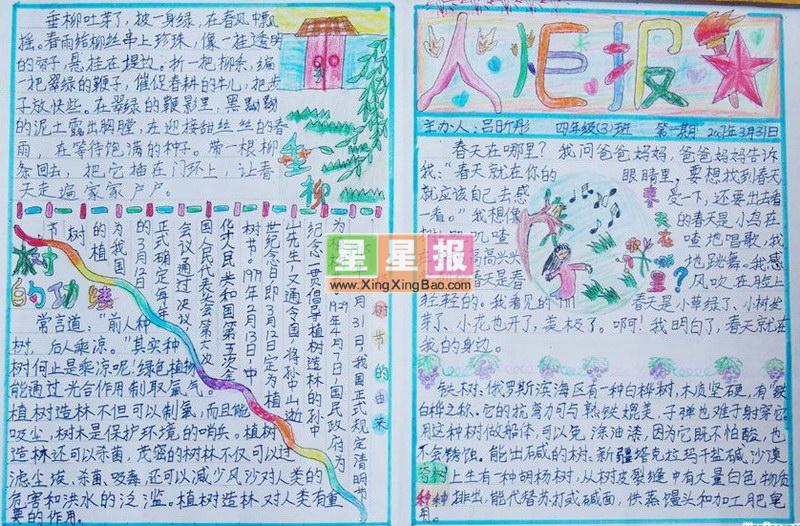 垂柳吐芽了，披一身绿，在春风中飘
摇。春雨给柳丝串上珍珠，像一挂透明
的帘子，悬挂在堤边。折一把柳条，编
一把翠绿的鞭子，催促春耕的牛儿，把步
子放快些。在翠绿的鞭影里，黑黝黝
的泥土露出胸膛，在迎接甜丝丝的春
雨，在等待饱满的种子。带一根柳
条回去，把它插在门环上，让春
天走遍家家户户。
垂柳
树的功绩
常言道："前人种
树，后人乘凉。"其实种
树何止是乘凉呢！绿色植物
能通过光合作用制取氧气。
植树造林不但可以制氧，而且能
吸尘，树木是保护环境的哨兵。植树
造林还可以杀菌，茂密的树林不仅可以过
滤尘埃、杀菌、吸毒，还可以减少风沙对人类的
危害和洪水的泛滥。植树造林对人类有重
要的作用。
树节的由来
纪念一贯倡导植树造林的孙中
山先生，又通令全国，将孙中山逝
世纪念日即3月12日定为植
树节。1979年2月13日，中
华人民共和国第五次全
国人民代表大会第六次
会议通过决议
正式确定每年
的3月12日
为我国
的植树
节
星星报
www.XingXingBao.com
人任报
主办人：吕昕彤 四年级(3)班 第一期 2007年3月31日
春天在哪里？我问爸爸妈妈，爸爸妈妈告诉
我："春天就在你的眼睛里，要想找到春天
就应该自己去感受一下，还要出去看
一看。"我想像的春天是小鸟在
叽喳喳地唱歌，我
地跳舞。我感
春天是春风吹在脸上
轻轻的。我看见的春天是小草绿了、小树发
芽了、小花也开了，美极了。啊！我明白了，春天就在
我的身边。
春天在哪里？
铁树：俄罗斯滨海区有一种白桦树，木质坚硬，有"铁
白桦"之称，它的抗弯力可与熟铁媲美，子弹也难于射穿它。
用这种树做船体，可以免涂油漆，因为它既不怕酸，也
不会锈蚀。能出碱的树：新疆塔克拉玛干盐碱沙漠
上生有一种胡杨树，从树皮裂缝中有大量白色物质
排出，能代替苏打或碱面，供蒸馒头和加工肥皂
用。
奇树种种